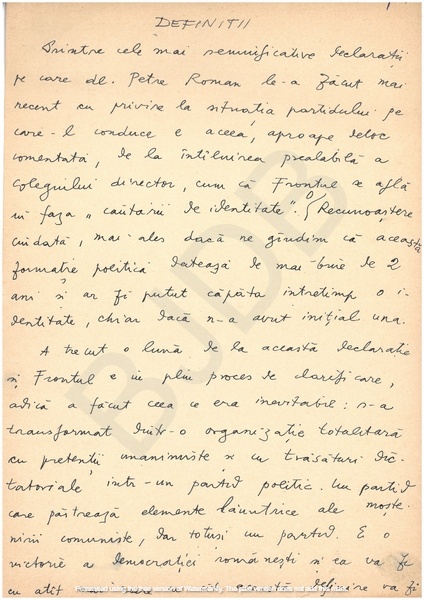 DEFINITII
Printre cele mai semnificative declaratii
pe care dl. Petre Roman le-a făcut mai
recent cu privire la situatia partidului pe
care-l conduce e aceea, aproape deloc
comentată, de la întîlnirea prealabilă a
Colegiului director, cum că Frontul se află
în faza "cautarii de identitate". O Recunoastere
ciudată, mai ales dacă ne gîndim că această
formatie politică datează de mai bine de 2
ani si ar fi putut căpăta intretimp o i-
dentitate, chiar dacă n-a avut initial una.
A trecut o lună de la această declaratie
si Frontul e in plin proces de clarificare,
adică a făcut ceea ce era inevitabil: s-a
transformat dintr-o organizatie totalitară
cu pretentii unanimiste si cu trăsături dic-
tatoriale, intr-un partid politic. Un partid
care păstrează elemente lăuntrice ale moste-
nirii comuniste, dar totusi un partid. E o
victorie a democratiei românesti si ea va fi
cu atît mai mare cu cît această definire va fi
BJDB